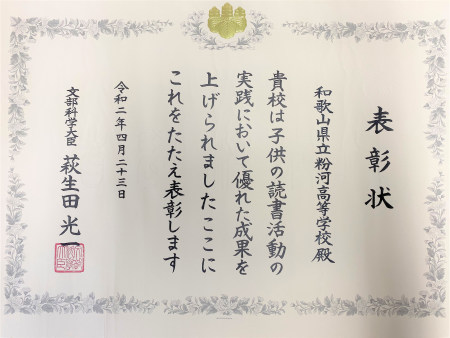 表彰状
和歌山県立粉河高等学校殿
貴校は子供の読書活動の
実践において優れた成果を
上げられましたここに
これをたたえ表彰します
令和二年四月二十三日
文部科学大臣 萩生田光一